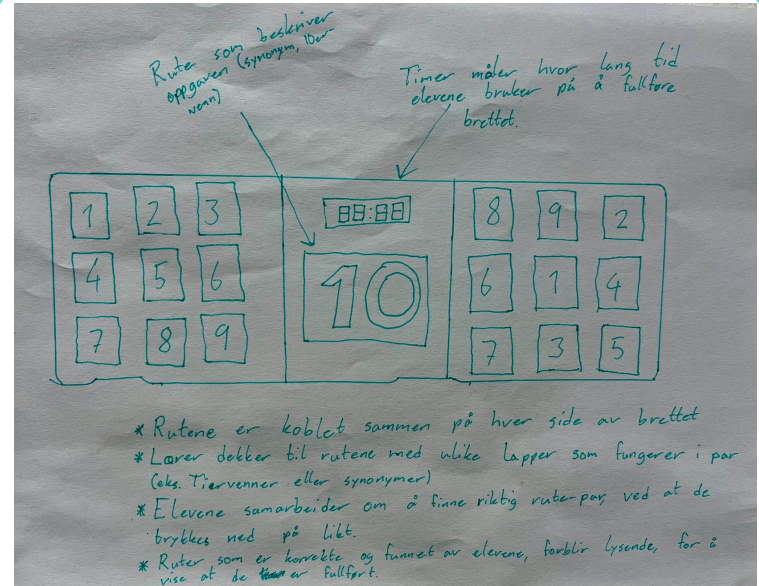 Ruter som beskriver
oppgaven (synonym, 10er-
venn)
Timer måler hvor lang tid
elevene bruker på å fullføre
brettet.
1 2 3
4 5 6
7 8 9
88:88
10
8 9 2
6 1 4
7 3 5
* Rutene er koblet sammen på hver side av brettet
* Lærer dekker til rutene med ulike lapper som fungerer i par
(eks. Tiervenner eller synonymer)
* Elevene samarbeider om å finne riktig rute-par, ved at de
trykkes ned på likt.
* Ruter som er korrekte og funnet av elevene, forblir lysende, for å
vise at de er fullført.